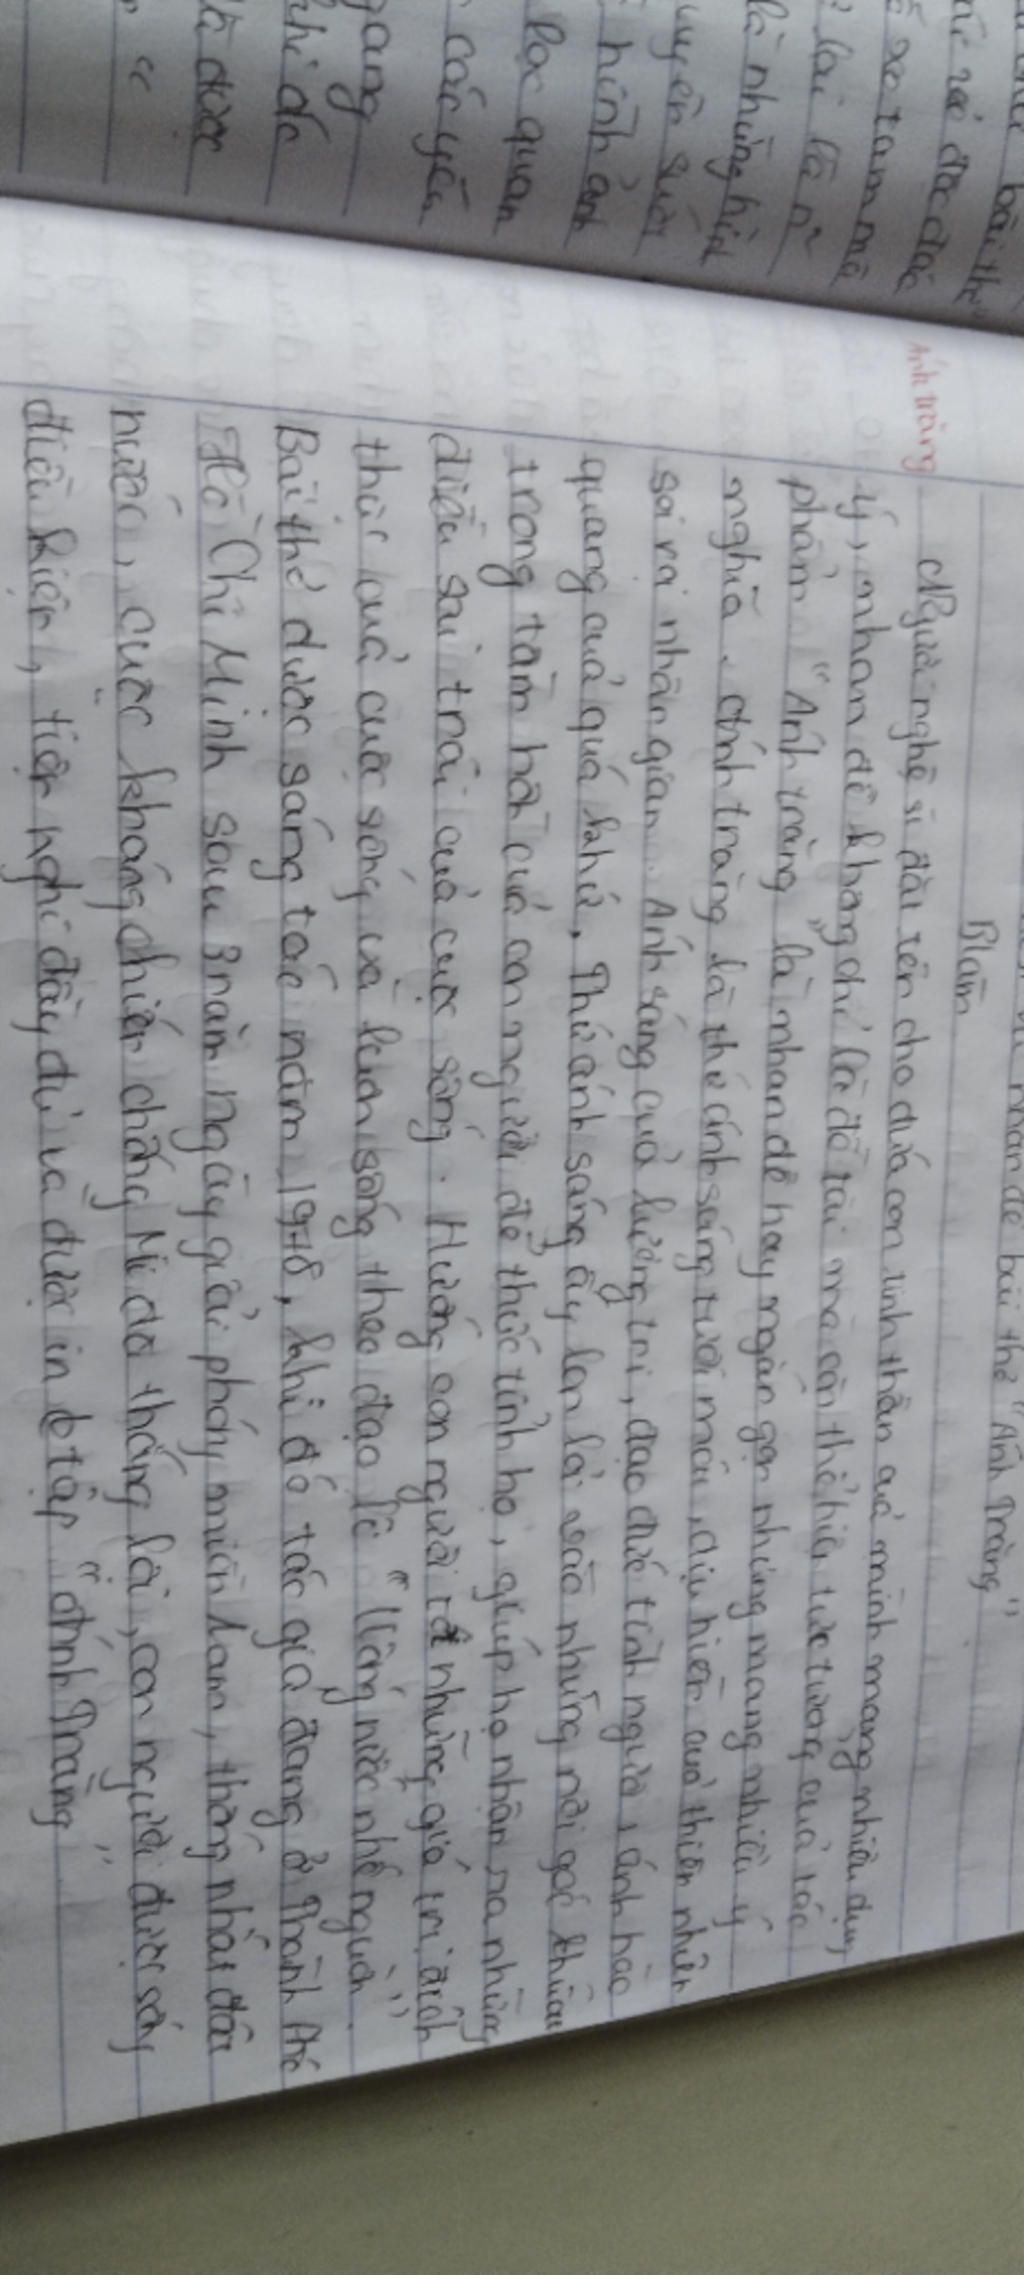 nhan đề bài thơ "Ánh Trăng"
Bài làm
Ánh trăng
Người nghệ sĩ đặt tên cho đứa con tinh thần của mình mang nhiều dụng
ý, nhan đề không chỉ là đề tài mà còn thể hiện tư tưởng của tác
phẩm "Ánh trăng" là nhan đề hay ngắn gọn nhưng mang nhiều ý
nghĩa. Ánh trăng là thứ ánh sáng tươi mát, dịu hiền của thiên nhiên
soi rọi nhân gian. Ánh sáng của lương tri, đạo đức tình người, ánh hào
quang của quá khứ. Thứ ánh sáng ấy len lỏi vào những nơi góc khuất
trong tâm hồn của con người để thức tỉnh họ, giúp họ nhận ra những
điều sai trái của cuộc sống. Hướng con người tới những giá trị đích
thực của cuộc sống và luôn sống theo đạo lí "Uống nước nhớ nguồn".
Bài thơ được sáng tác năm 1978, khi đó tác giả đang ở Thành Phố
Hồ Chí Minh sau 3 năm ngày giải phóng miền Nam, thống nhất đất
nước, cuộc kháng chiến chống Mĩ đã thắng lợi, con người được sống
điều kiện, tiện nghi đầy đủ và được in tập "Ánh Trăng"
bài thơ
xe tăm mà
lại là
là những hình
hình ảnh
lạc quan
các yếu
gang
khi đó
là được